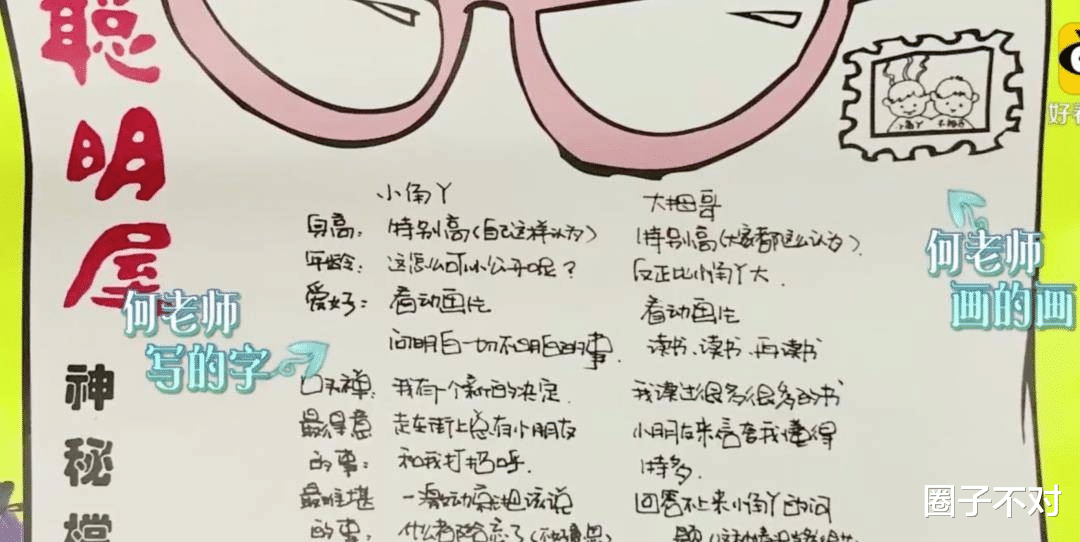 聰明屋
神秘檔
何老师
写的字
何老师
画的画
好看
小俏丫 大拇哥
身高: 特别高(自己这样认为) 特别高(大家都这么认为).
年龄: 这怎么可以公开呢? 反正比小俏丫大.
爱好: 看动画片 看动画片
问明白一切不明白的事. 读书、读书、再读书
口头禅: 我有一个新的决定. 我读过很多很多的书
最得意 走在街上总有小朋友 小朋友来 我懂得
的事: 和我打招呼. 特多.
最难堪 一激动就把该说 回答不上来小俏丫的问
的事: 什么都给忘了(不好意思) 题
圈子不对